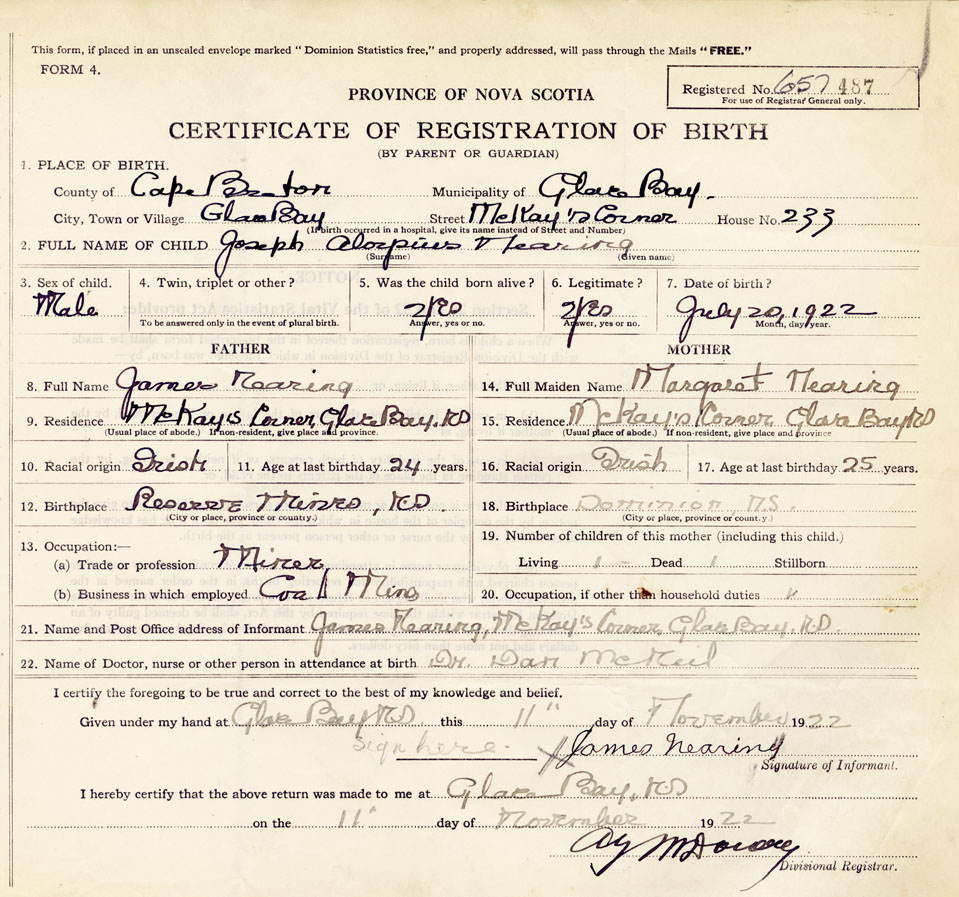 This form, if placed in an unsealed envelope marked "Dominion Statistics free," and properly addressed, will pass through the Mails "FREE."
FORM 4.
Registered No. 657 487
For use of Registrar General only.
PROVINCE OF NOVA SCOTIA
CERTIFICATE OF REGISTRATION OF BIRTH
(BY PARENT OR GUARDIAN)
1. PLACE OF BIRTH.
County of Cape Breton Municipality of Glace Bay.
City, Town or Village Glace Bay Street McKay's Corner House No. 233
(If birth occurred in a hospital, give its name instead of Street and Number)
2. FULL NAME OF CHILD Joseph Aloysius Nearing
(Surname) (Given name)
3. Sex of child. 4. Twin, triplet or other? 5. Was the child born alive? 6. Legitimate? 7. Date of birth?
Male Yes Yes July 20, 1922
To be answered only in the event of plural birth. Answer, yes or no. Answer, yes or no. Month, day, year.
FATHER MOTHER
8. Full Name James Nearing 14. Full Maiden Name Margaret Nearing
9. Residence McKay's Corner, Glace Bay, NS 15. Residence McKay's Corner, Glace Bay NS
(Usual place of abode.) If non-resident, give place and province. (Usual place of abode.) If non-resident, give place and province
10. Racial origin Irish 11. Age at last birthday 24 years. 16. Racial origin Irish 17. Age at last birthday 25 years.
12. Birthplace Reserve Mines, NS. 18. Birthplace Dominion, N.S.
(City or place, province or country.) (City or place, province or country.)
13. Occupation:— 19. Number of children of this mother (including this child.)
(a) Trade or profession Miner Living 1 Dead 1 Stillborn
(b) Business in which employed Coal Mine 20. Occupation, if other than household duties "
21. Name and Post Office address of Informant James Nearing, McKay's Corner, Glace Bay, NS.
22. Name of Doctor, nurse or other person in attendance at birth Dr. Dan McNeil
I certify the foregoing to be true and correct to the best of my knowledge and belief.
Given under my hand at Glace Bay NS. this 11" day of November 1922
sign here. X James Nearing
Signature of Informant.
I hereby certify that the above return was made to me at Glace Bay, NS
on the 11" day of November 1922
Divisional Registrar.